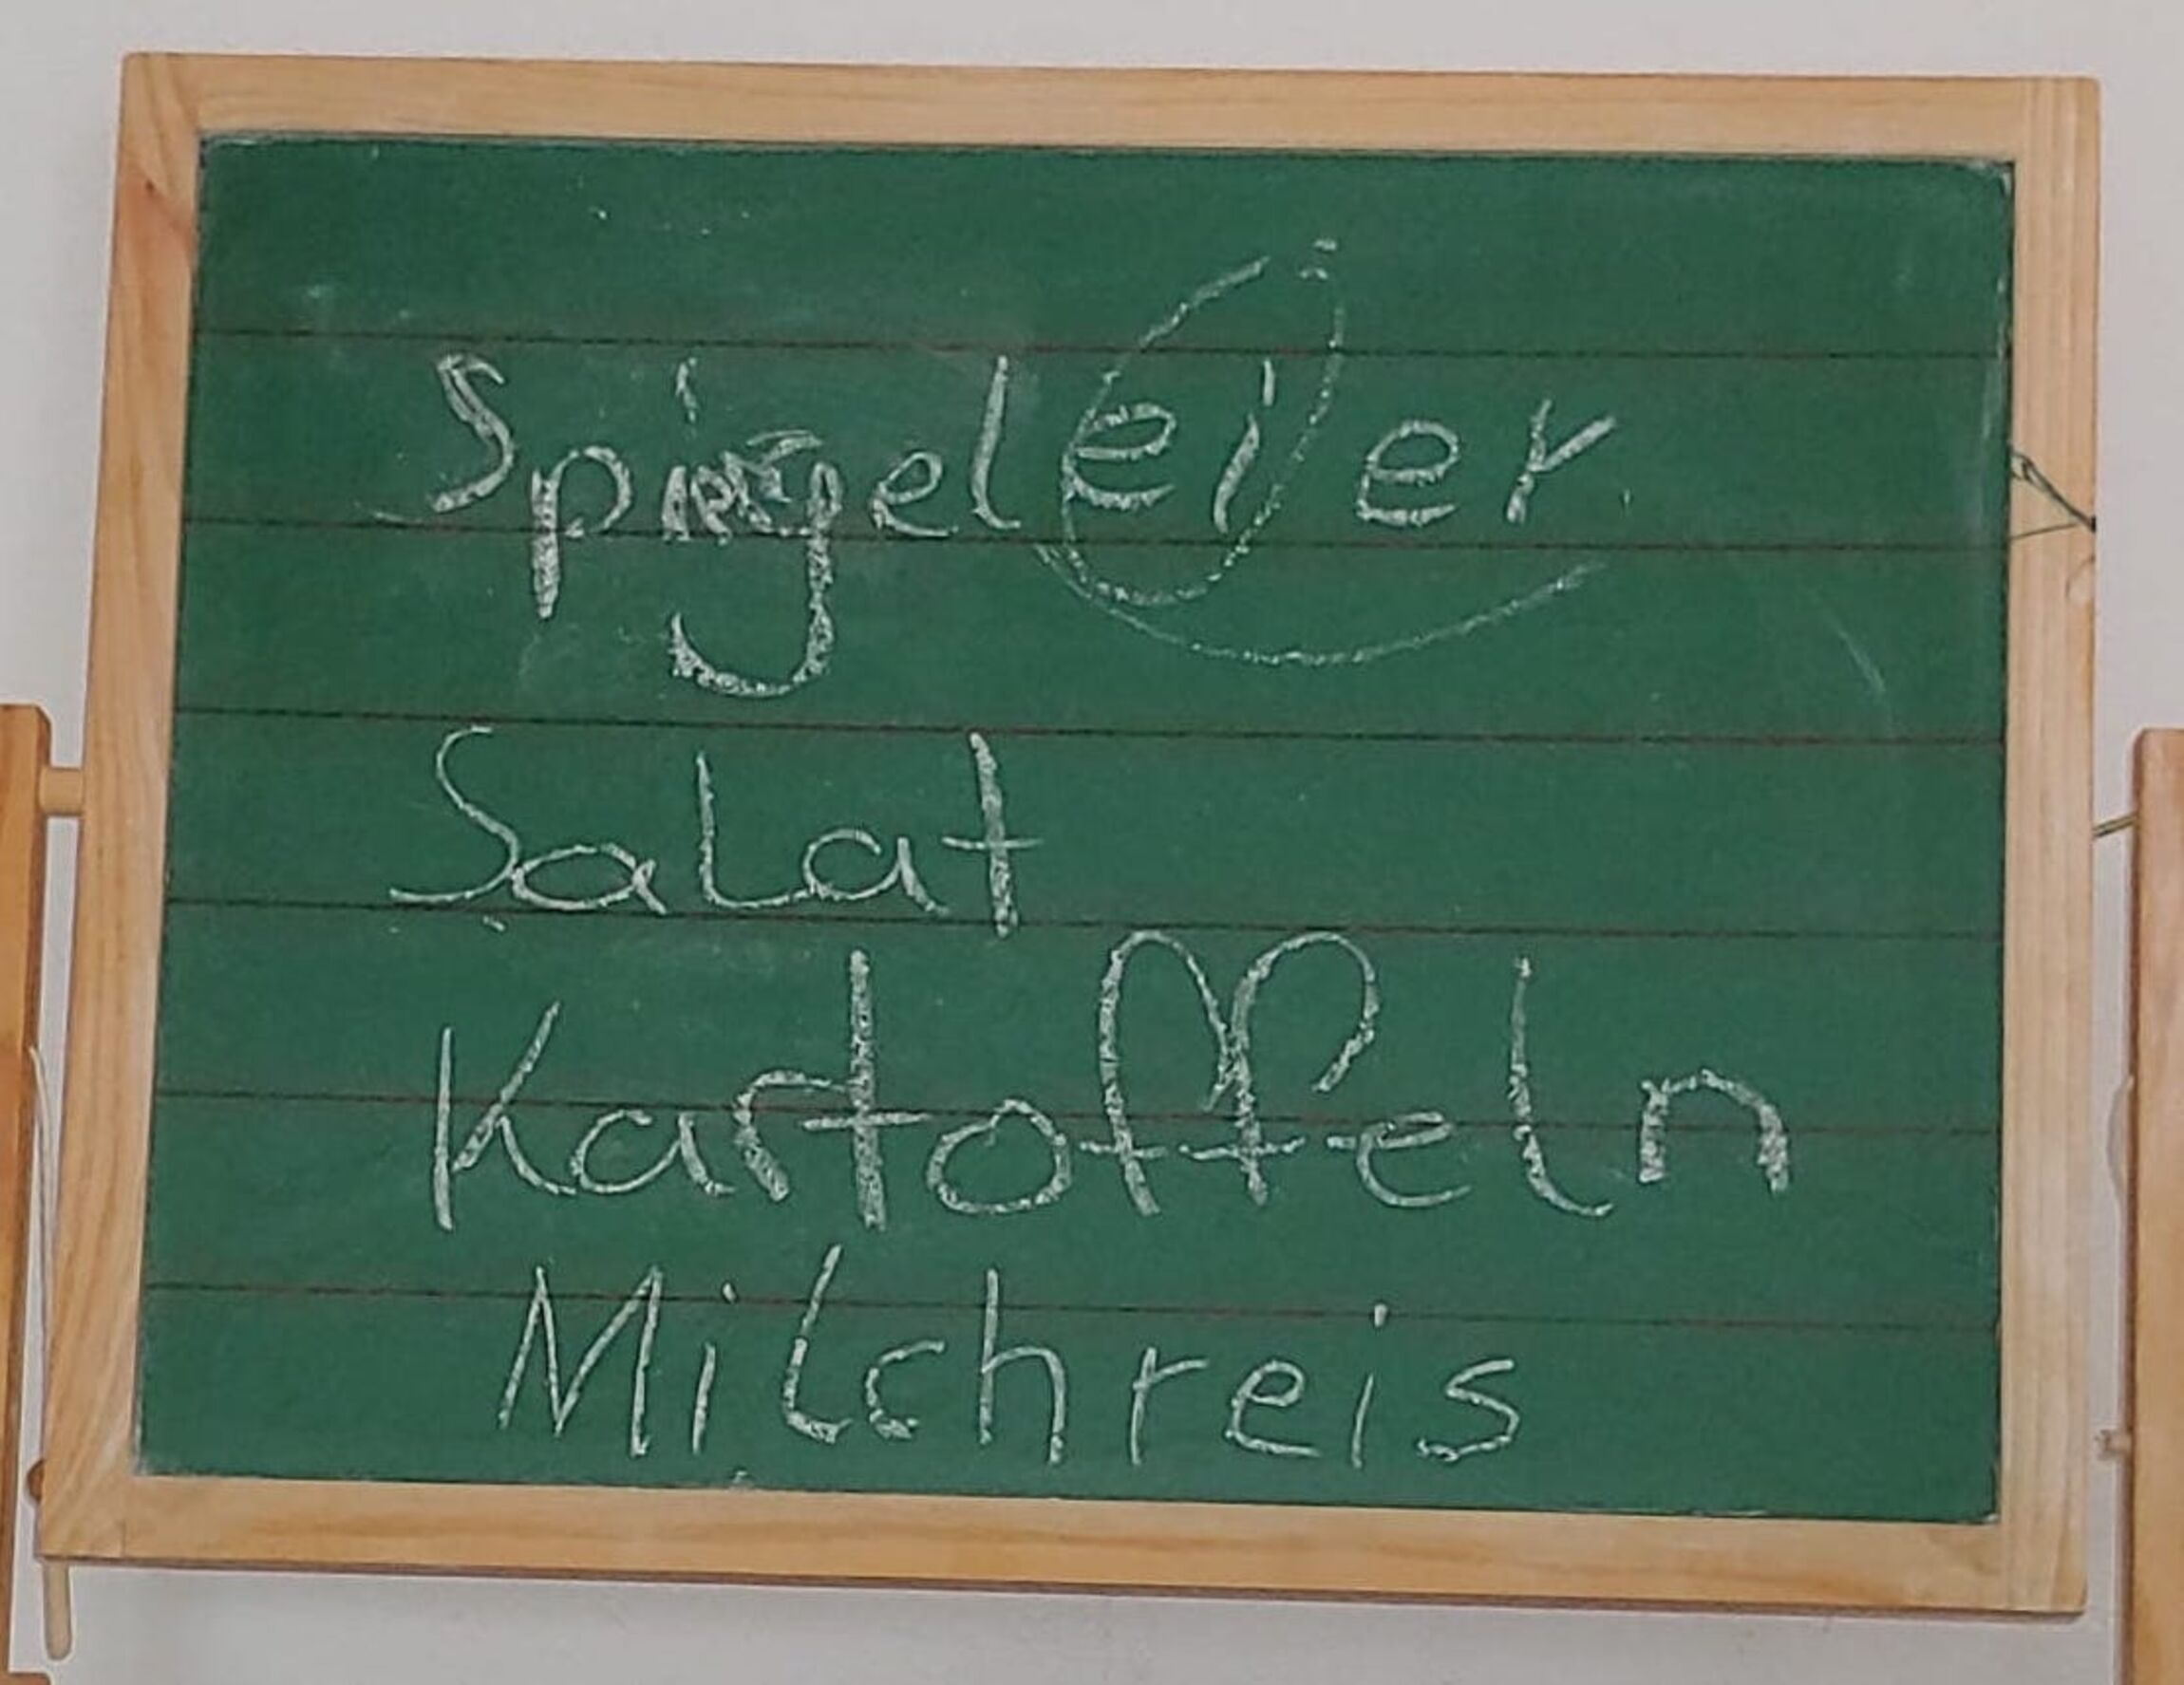 Spiegeleier
Salat
Kartoffeln
Milchreis